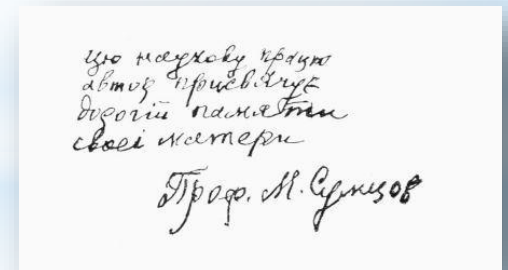 цю наукову працю
автор присвячує
дорогій памяти
своєі матери
Проф. М. Сумцов